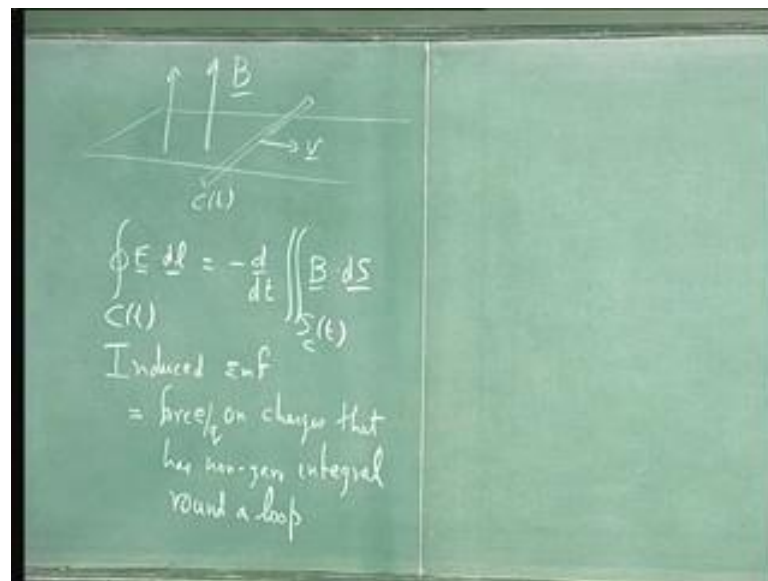 B
v
C(t)
∮ E dl = - d/dt ∬ B dS
C(t) S_c(t)
Induced Emf
= force/q on charges that
has non-zero integral
round a loop